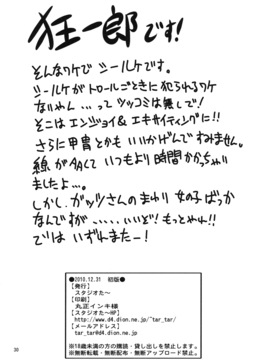 狂一郎です!
そんなワケで シールケです。
シールケがトロールごときに犯られるワケ
ないじゃん...ってツッコミは無しで!
そこは エンジョイ & エキサイティングに!!
さらに甲冑とかも いいかげんですみません。
線が多くて いつもより時間かかっちゃい
ましたよ...。
しかし、ガッツさんのまわり 女の子ばっか
なんですが、、、、、いいぞ! もっとやれ!!
ではいずれまたー!
●2010.12.31 初版●
【発行】
スタジオたー
【印刷】
丸正インキ様
【スタジオたーHP】
http://www.d4.dion.ne.jp/~tar_tar/
【メールアドレス】
tar_tar@d4.dion.ne.jp
※18歳未満の方の購読・貸し出しを禁止します。
※無断転載・無断配布・無断アップロード禁止。
30